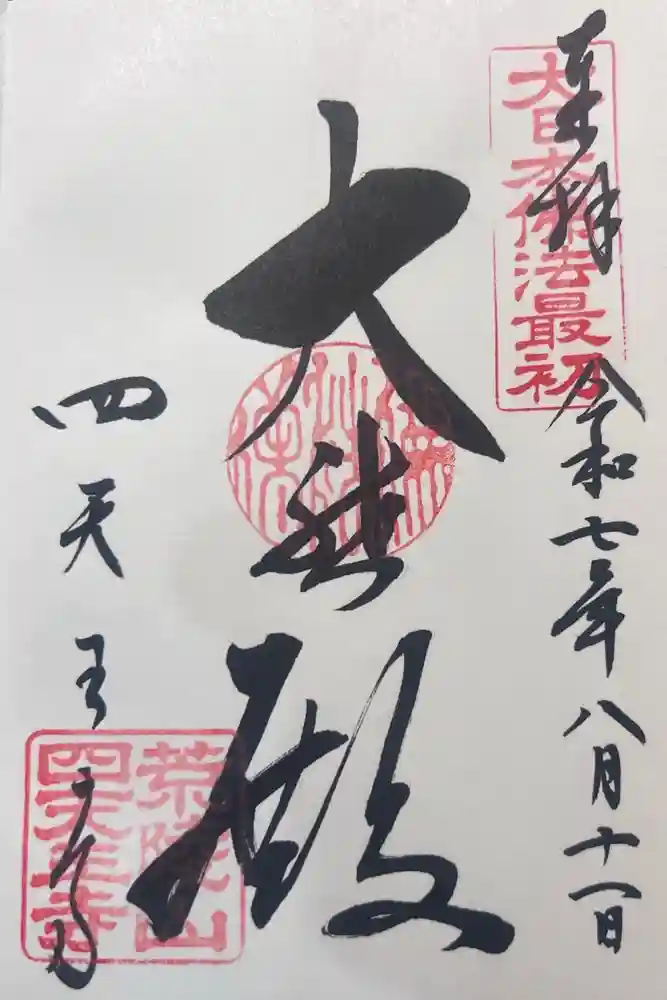 奉拝 令和七年八月十一日
大日本佛法最初
大悲殿
四天王寺
荒陵山
四天王寺